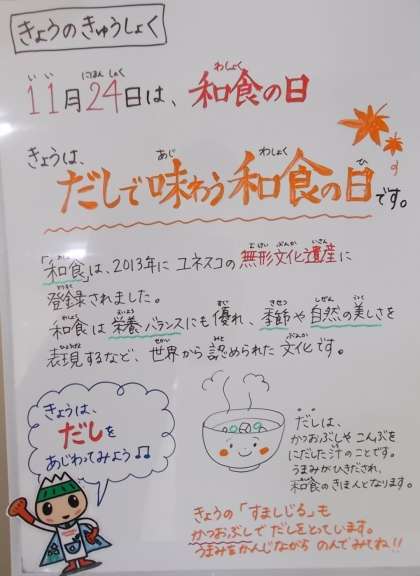 きょうのきゅうしょく
11月24日は、和食の日
きょうは、
だしで味わう和食の日です。
「和食」は、2013年に ユネスコの 無形文化遺産に
登録されました。
和食は 栄養バランスにも 優れ、季節や 自然の美しさを
表現するなど、世界から 認められた 文化です。
きょうは、
だしを
あじわってみよう♫
だしは、
かつおぶしや こんぶを
にだした汁のことです。
うまみがひきだされ、
和食のきほんとなります。
きょうの「すましじる」も
かつおぶしで だしをとっています。
うまみをかんじながら のんでみてね!!